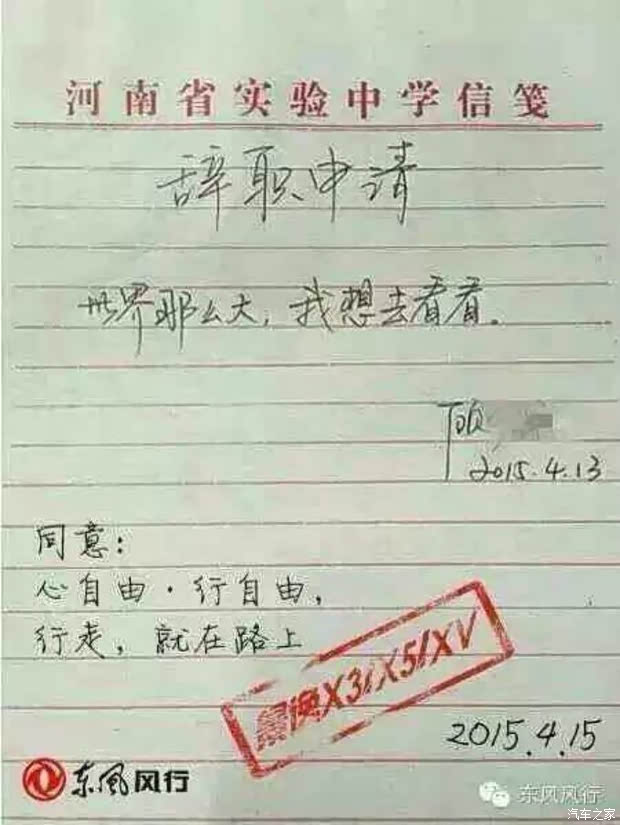 河南省实验中学信笺
辞职申请
世界那么大，我想去看看。
顾
2015.4.13
同意：
心自由·行自由，
行走，就在路上
景逸X3/X5/XV
2015.4.15
东风风行
东风风行
汽车之家